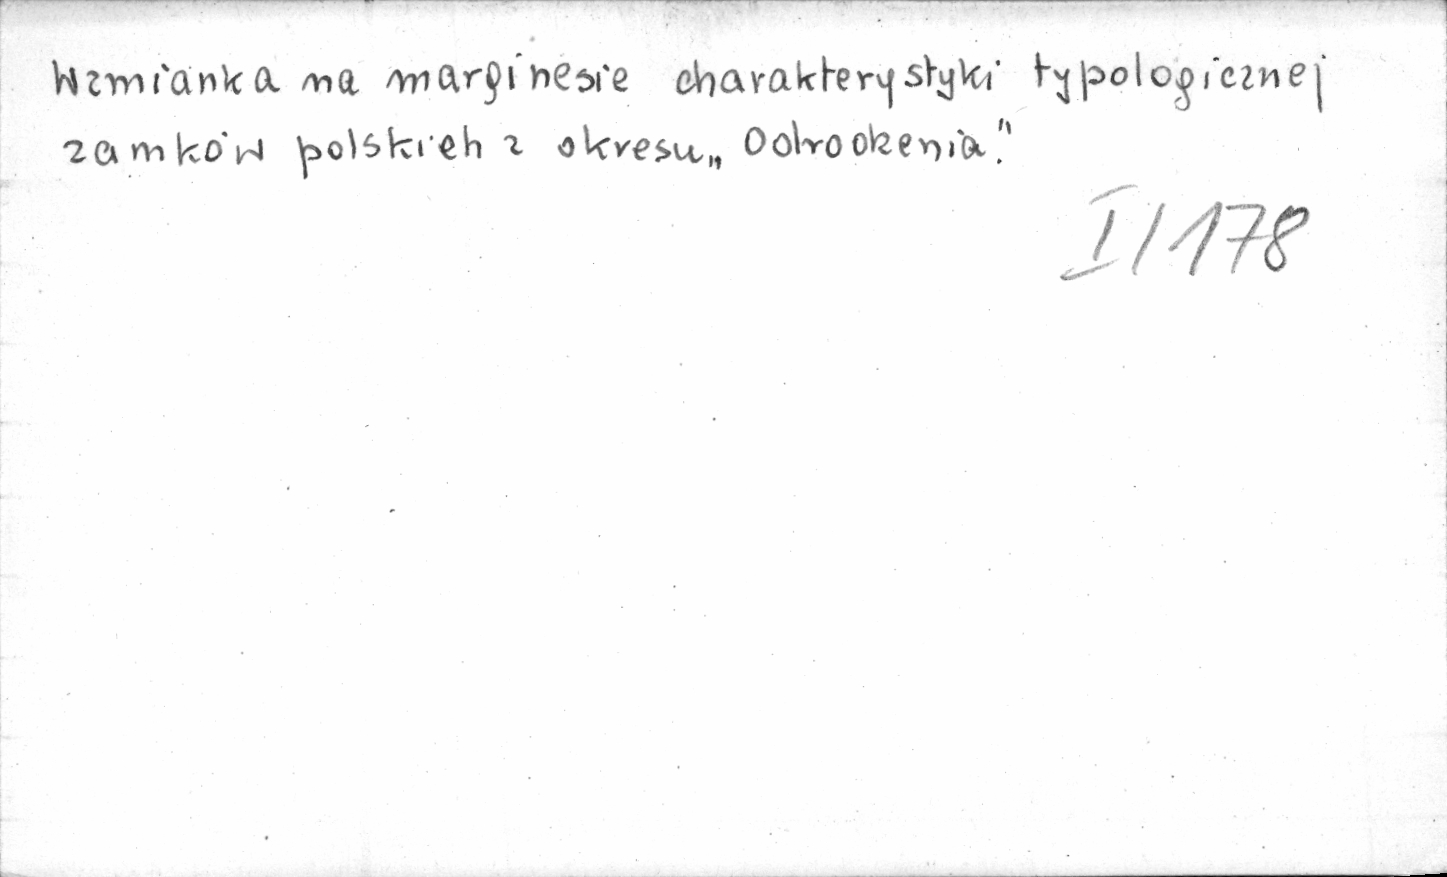 Wzmianka na marginesie charakterystyki typologicznej
zamków polskich z okresu „Odrodzenia."
I/178